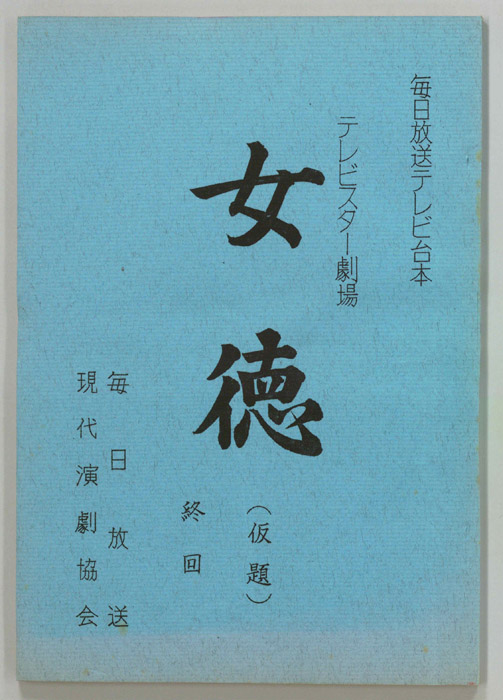 毎日放送テレビ台本
テレビスター劇場
女徳
（仮題）
終回
毎日放送
現代演劇協会